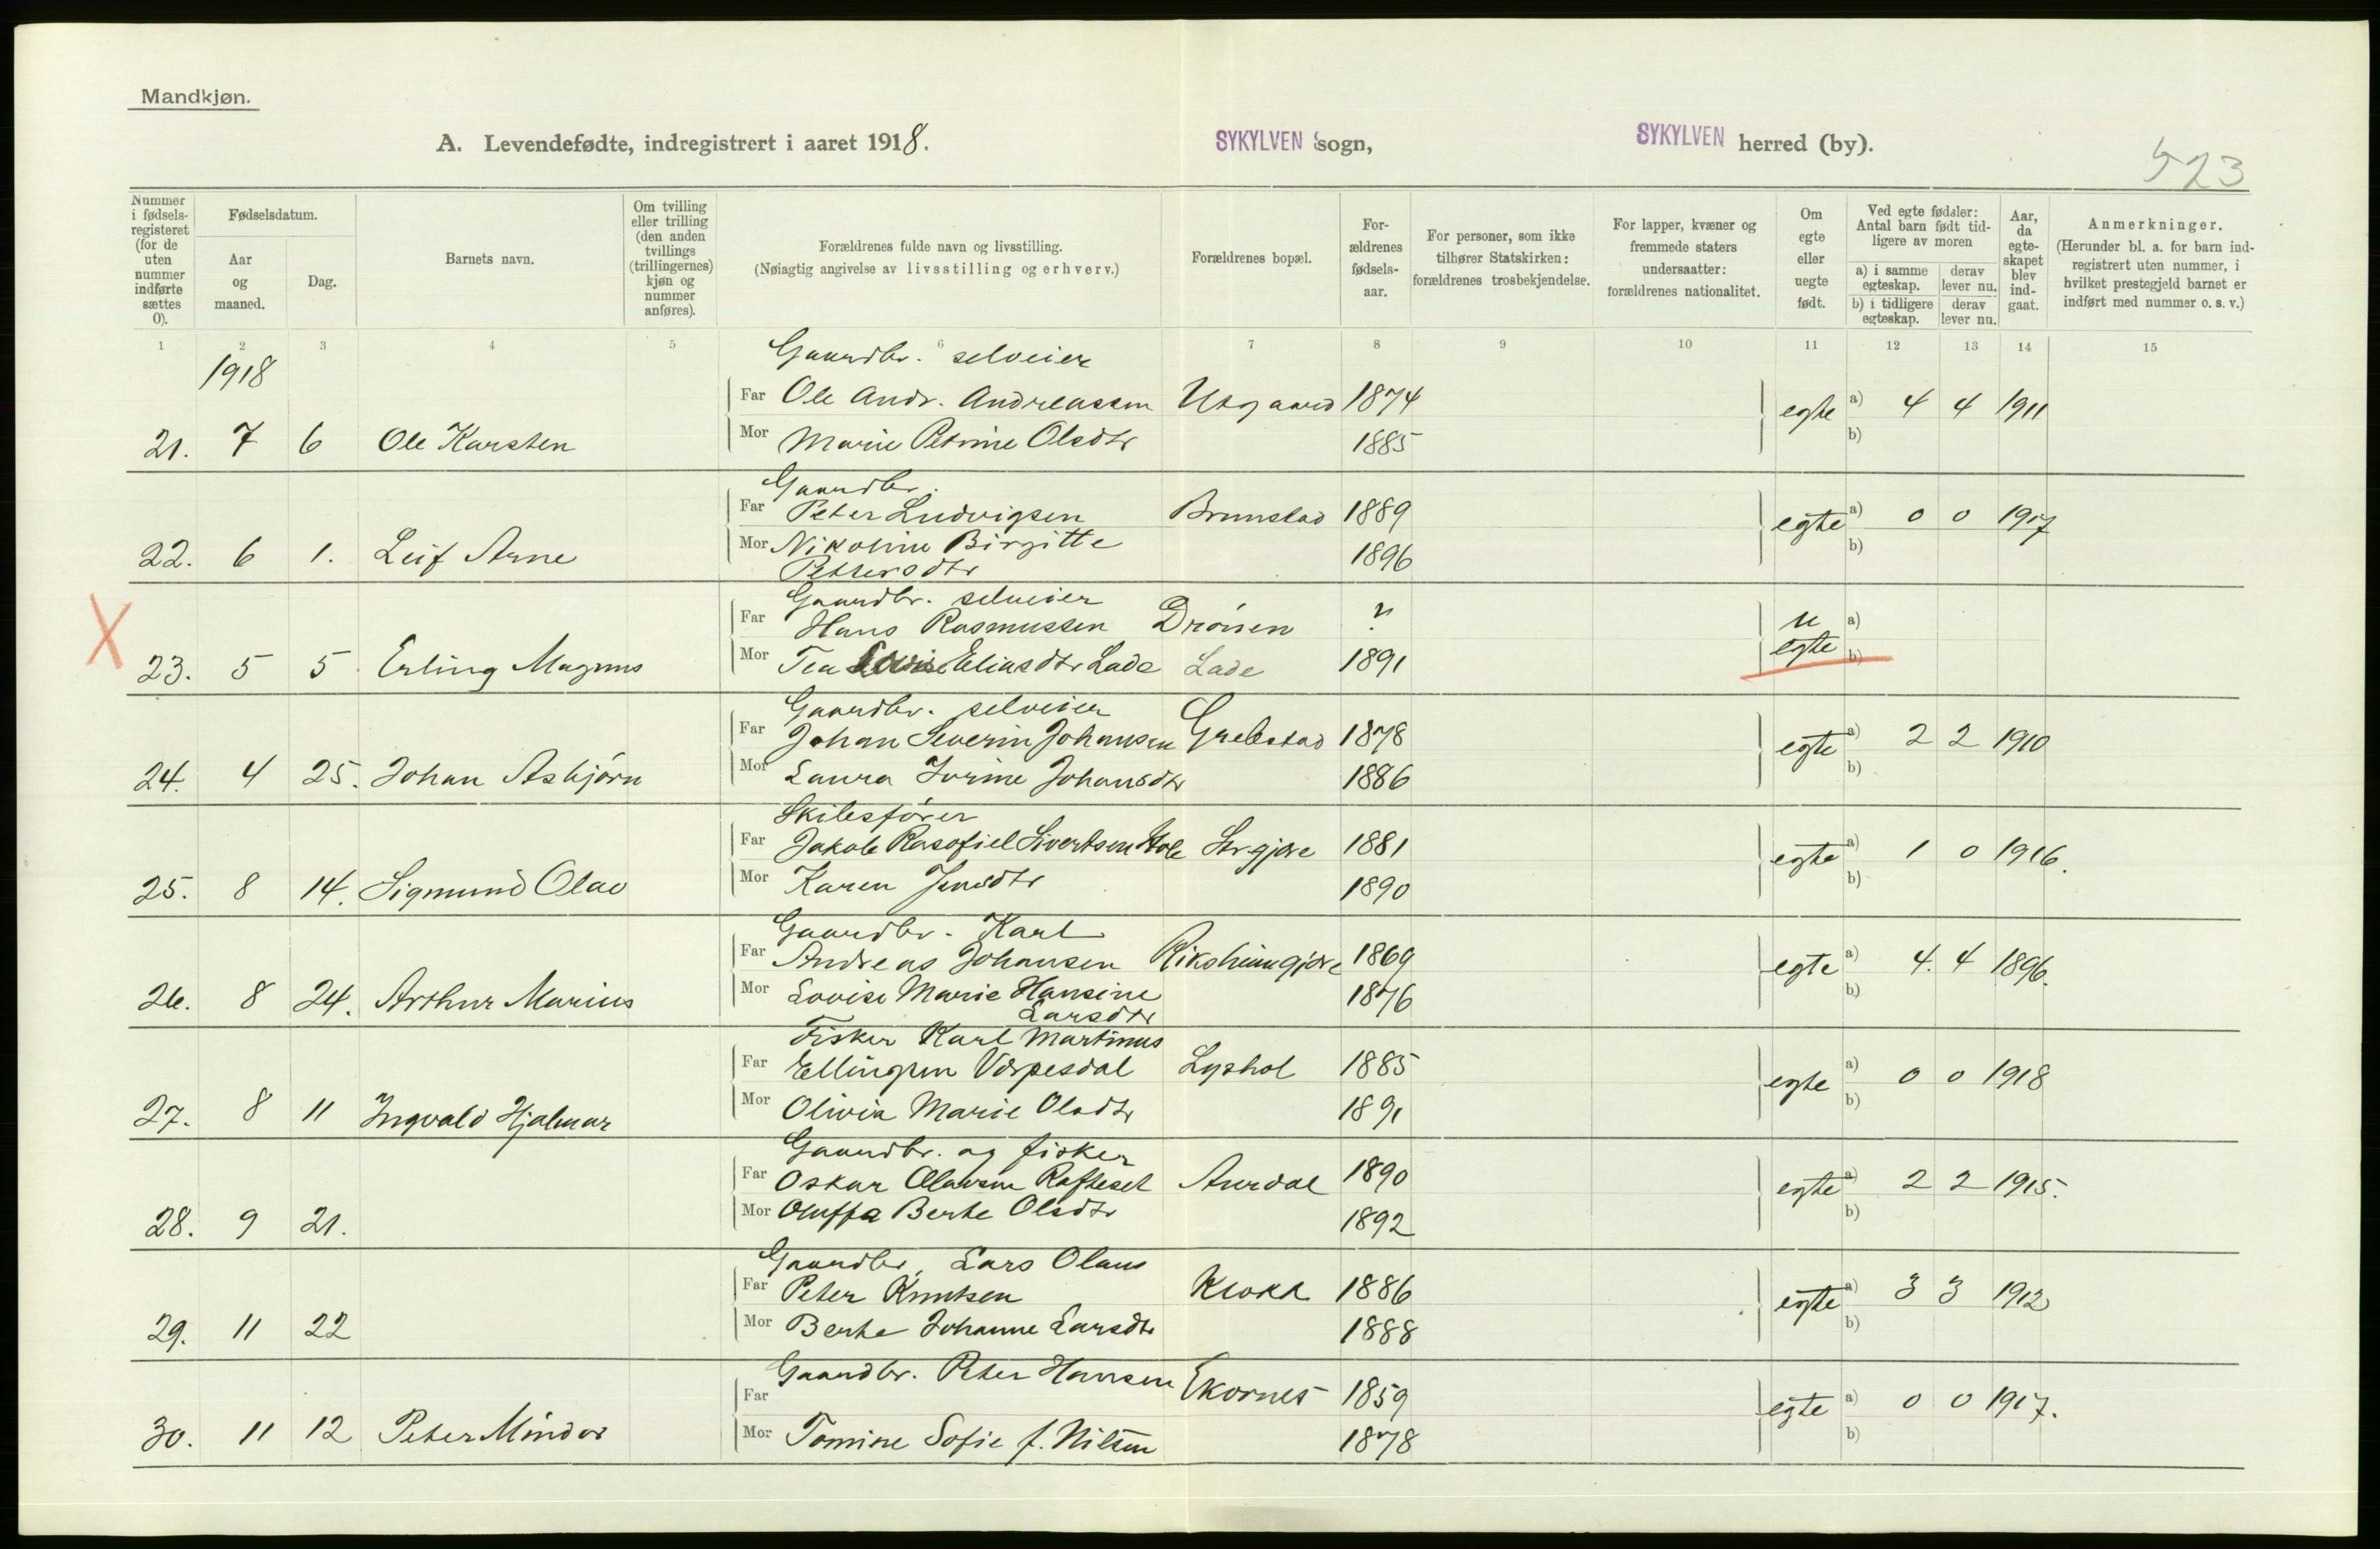 Mandkjøn.
A. Levendefødte, indregistrert i aaret 1918.
SYKYLVEN sogn,
SYKYLVEN herred (by).
523
Nummer i fødsels- registeret (for de uten nummer indførte sættes 0).
Fødselsdatum.
Aar og maaned.
Dag.
Barnets navn.
Om tvilling eller trilling (den anden tvillings (trillingernes) kjøn og nummer anføres).
Forældrenes fulde navn og livsstilling.
(Nøiagtig angivelse av livsstilling og erhverv.)
Forældrenes bopæl.
For- ældrenes fødsels- aar.
For personer, som ikke tilhører Statskirken: forældrenes trosbekjendelse.
For lapper, kvæner og fremmede staters undersaatter: forældrenes nationalitet.
Om egte eller uegte født.
Ved egte fødsler: Antal barn født tid- ligere av moren
a) i samme egteskap.
derav lever nu.
b) i tidligere egteskap.
derav lever nu.
Aar, da egte- skapet blev ind- gaat.
Anmerkninger.
(Herunder bl. a. for barn ind- registrert uten nummer, i hvilket prestegjeld barnet er indført med nummer o. s. v.)
1 2 3 4 5 6 7 8 9 10 11 12 13 14 15
1918
Gaardbr. selveier
Far Ole Andr. Andreassen Utgaard 1874 egte a) 4 4 1911
21. 7 6 Ole Karsten Mor Marie Petrine Olsdtr 1885 b)
Gaardbr.
Far Peter Ludvigsen Brunstad 1889 egte a) 0 0 1917
22. 6 1. Leif Arne Mor Nikoline Birgitte 1896 b)
Pettersdtr
Gaardbr. selveier
Far Hans Rasmussen Drönen ? u a)
X 23. 5 5 Erling Magnus Mor Tea Eliasdtr Lade Lade 1891 egte b)
Gaardbr. selveier
Far Johan Severin Johansen Grebstad 1878 egte a) 2 2 1910
24. 4 25. Johan Asbjörn Mor Laura Johansdtr 1886 b)
Skibsförer
Far Jakob Sivertsen 1881 egte a) 1 0 1916.
25. 8 14. Sigmund Olav Mor Karen Jensdtr 1890 b)
Gaardbr. Karl
Far Andreas Johansen Riksheimgjære 1869 egte a) 4. 4 1896.
26. 8 24. Arthur Marius Mor Lovise Marie Hansine 1876 b)
Larsdtr
Fisker Karl Martinus
Far Ellingsen Vespesdal Lyshol 1885 egte a) 0 0 1918
27. 8 11 Ingvald Hjalmar Mor Olivia Marie Olsdtr 1891 b)
Gaardbr. og fisker
Far Oskar Olavsen Rafteset Aurdal 1890 egte a) 2 2 1915.
28. 9 21. Mor Oluffa Berte Olsdtr 1892 b)
Gaardbr. Lars Olaus
Far Peter Knutsen Klokk 1886 egte a) 3 3 1912
29. 11 22 Mor Berte Johanne Larsdtr 1888 b)
Gaardbr. Peter Hansen Ekornes 1859
Far egte a) 0 0 1917.
30. 11 12 Peter Mindor Mor Tomine Sofie f. Nilsen 1878 b)